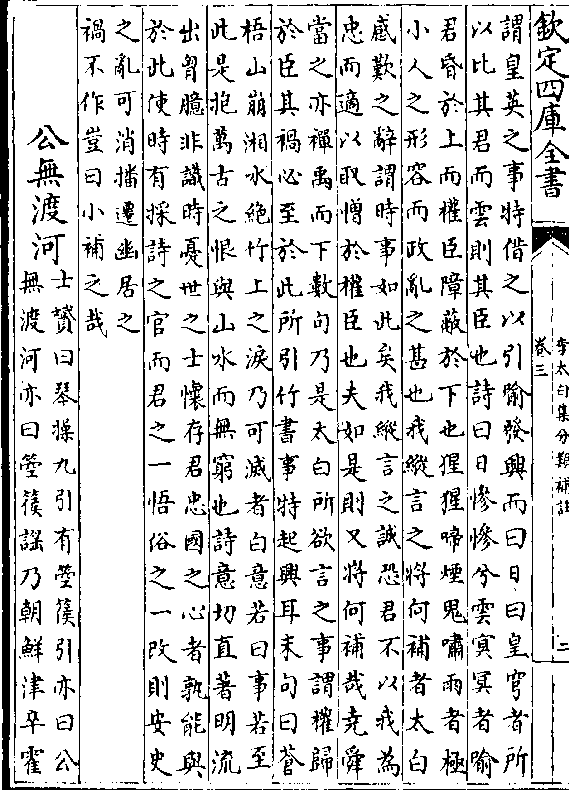 欽定四庫全書
李太白集分類補註
卷三
二
謂皇英之事特借之以引喻發興而曰日曰皇穹者所
以比其君而雲則其臣也詩曰日慘慘兮雲冥冥者喻
君昏於上而權臣障蔽於下也猩猩啼煙鬼嘯雨者極
小人之形容而政亂之甚也我縱言之將何補者太白
感歎之辭謂時事如此矣我縱言之誠恐君不以我為
忠而適以取憎於權臣也夫如是則又將何補哉堯舜
當之亦禪禹而下數句乃是太白所欲言之事謂權歸
於臣其禍必至於此所引竹書事特起興耳末句曰蒼
梧山崩湘水絶竹上之淚乃可滅者白意若曰事若至
此是抱萬古之恨與山水而無窮也詩意切直著明流
出胷臆非識時憂世之士懷存君忠國之心者孰能與
於此使時有採詩之官而君之一悟俗之一改則安史
之亂可消播遷幽居之
禍不作豈曰小補之哉
公無渡河
士贇曰琴操九引有箜篌引亦曰公
無渡河亦曰箜篌謡乃朝鮮津卒霍